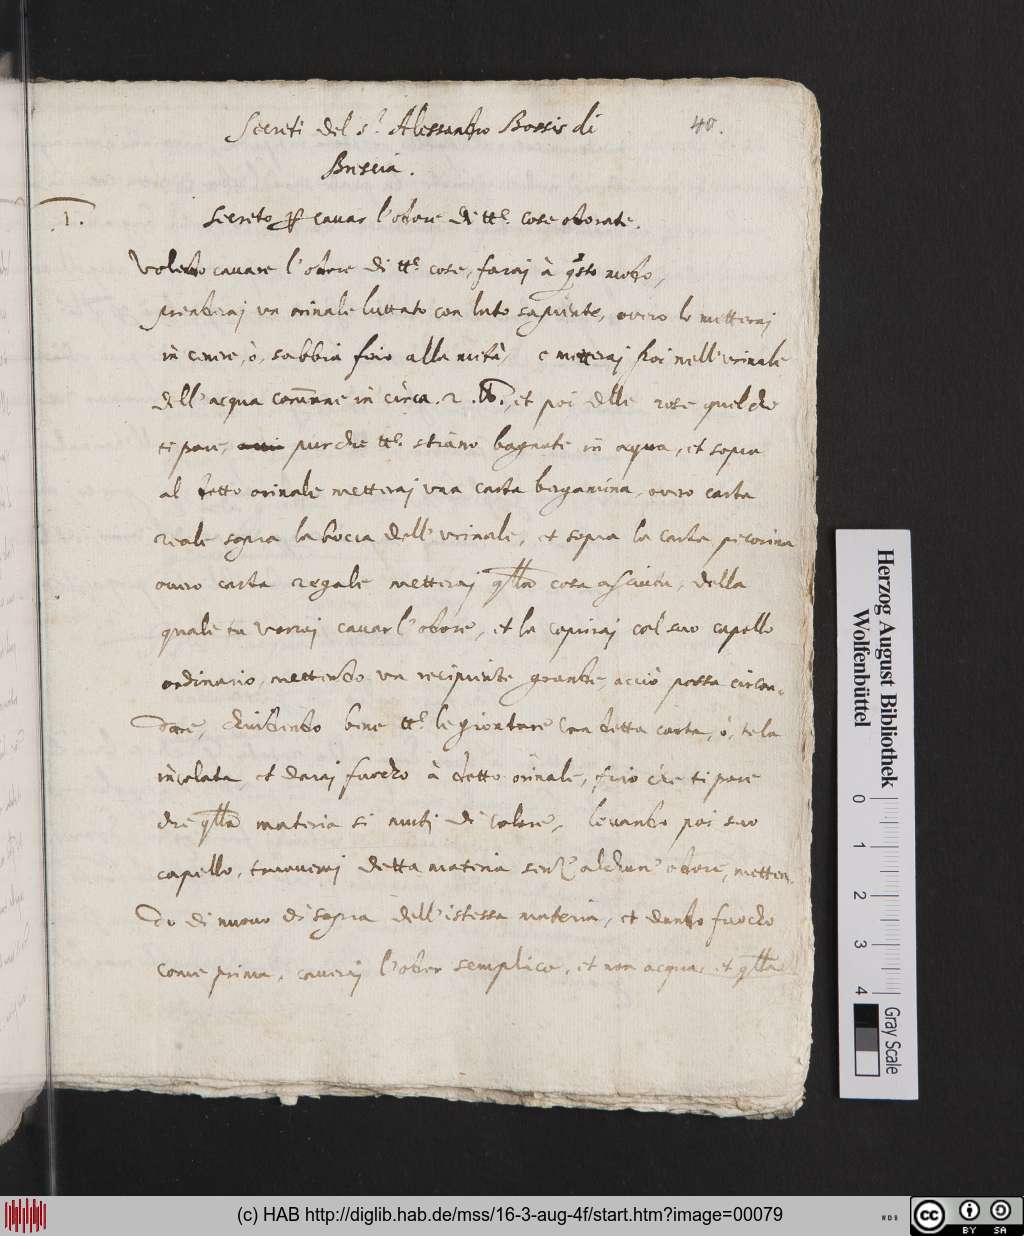 Secreti del s.r Alessandro Bossis di
40.
Brescia.
1.
Secreto p cauar l'odore de tte cose odorate.
Volendo cauare l'odore di tte cose, faraj à qsto modo,
prenderaj vn orinale luttato con luto sapiente, overo lo metteraj
in cenere, ò, sabbia fino alla mità, e metteraj poi nell'vrinale
dell'acqua comune in circa .2. lb., et poi delle rose quel che
ti pare, pur che tte stiano bagnate in acqua, et sopra
al detto orinale metteraj vna carta bergamina, overo carta
reale sopra la bocca dell'vrinale, et sopra la carta pecorina
overo carta regale metteraj qlla cosa asciuta, della
quale tu vorraj cauar l'odore, et la copriraj col suo capello
ordinario, mettendo vn recipiente grande, acciò possa circon-
dare, chiudendo bene tte le gionture con detta carta, ò, tela
incolata, et daraj fuocho à detto orinale, fino che ti pare
che qlla materia si muti di colore, levando poi suo
capello, trouerai detta materia senza alchun' odore, metten-
do di nuouo di sopra dell'istessa materia, et dando fuocho
come prima, caueraj l'odor semplice, et non acqua, et qlla
Herzog August Bibliothek
Wolfenbüttel
0 1 2 3 4
Gray Scale
(c) HAB http://diglib.hab.de/mss/16-3-aug-4f/start.htm?image=00079
cc BY SA